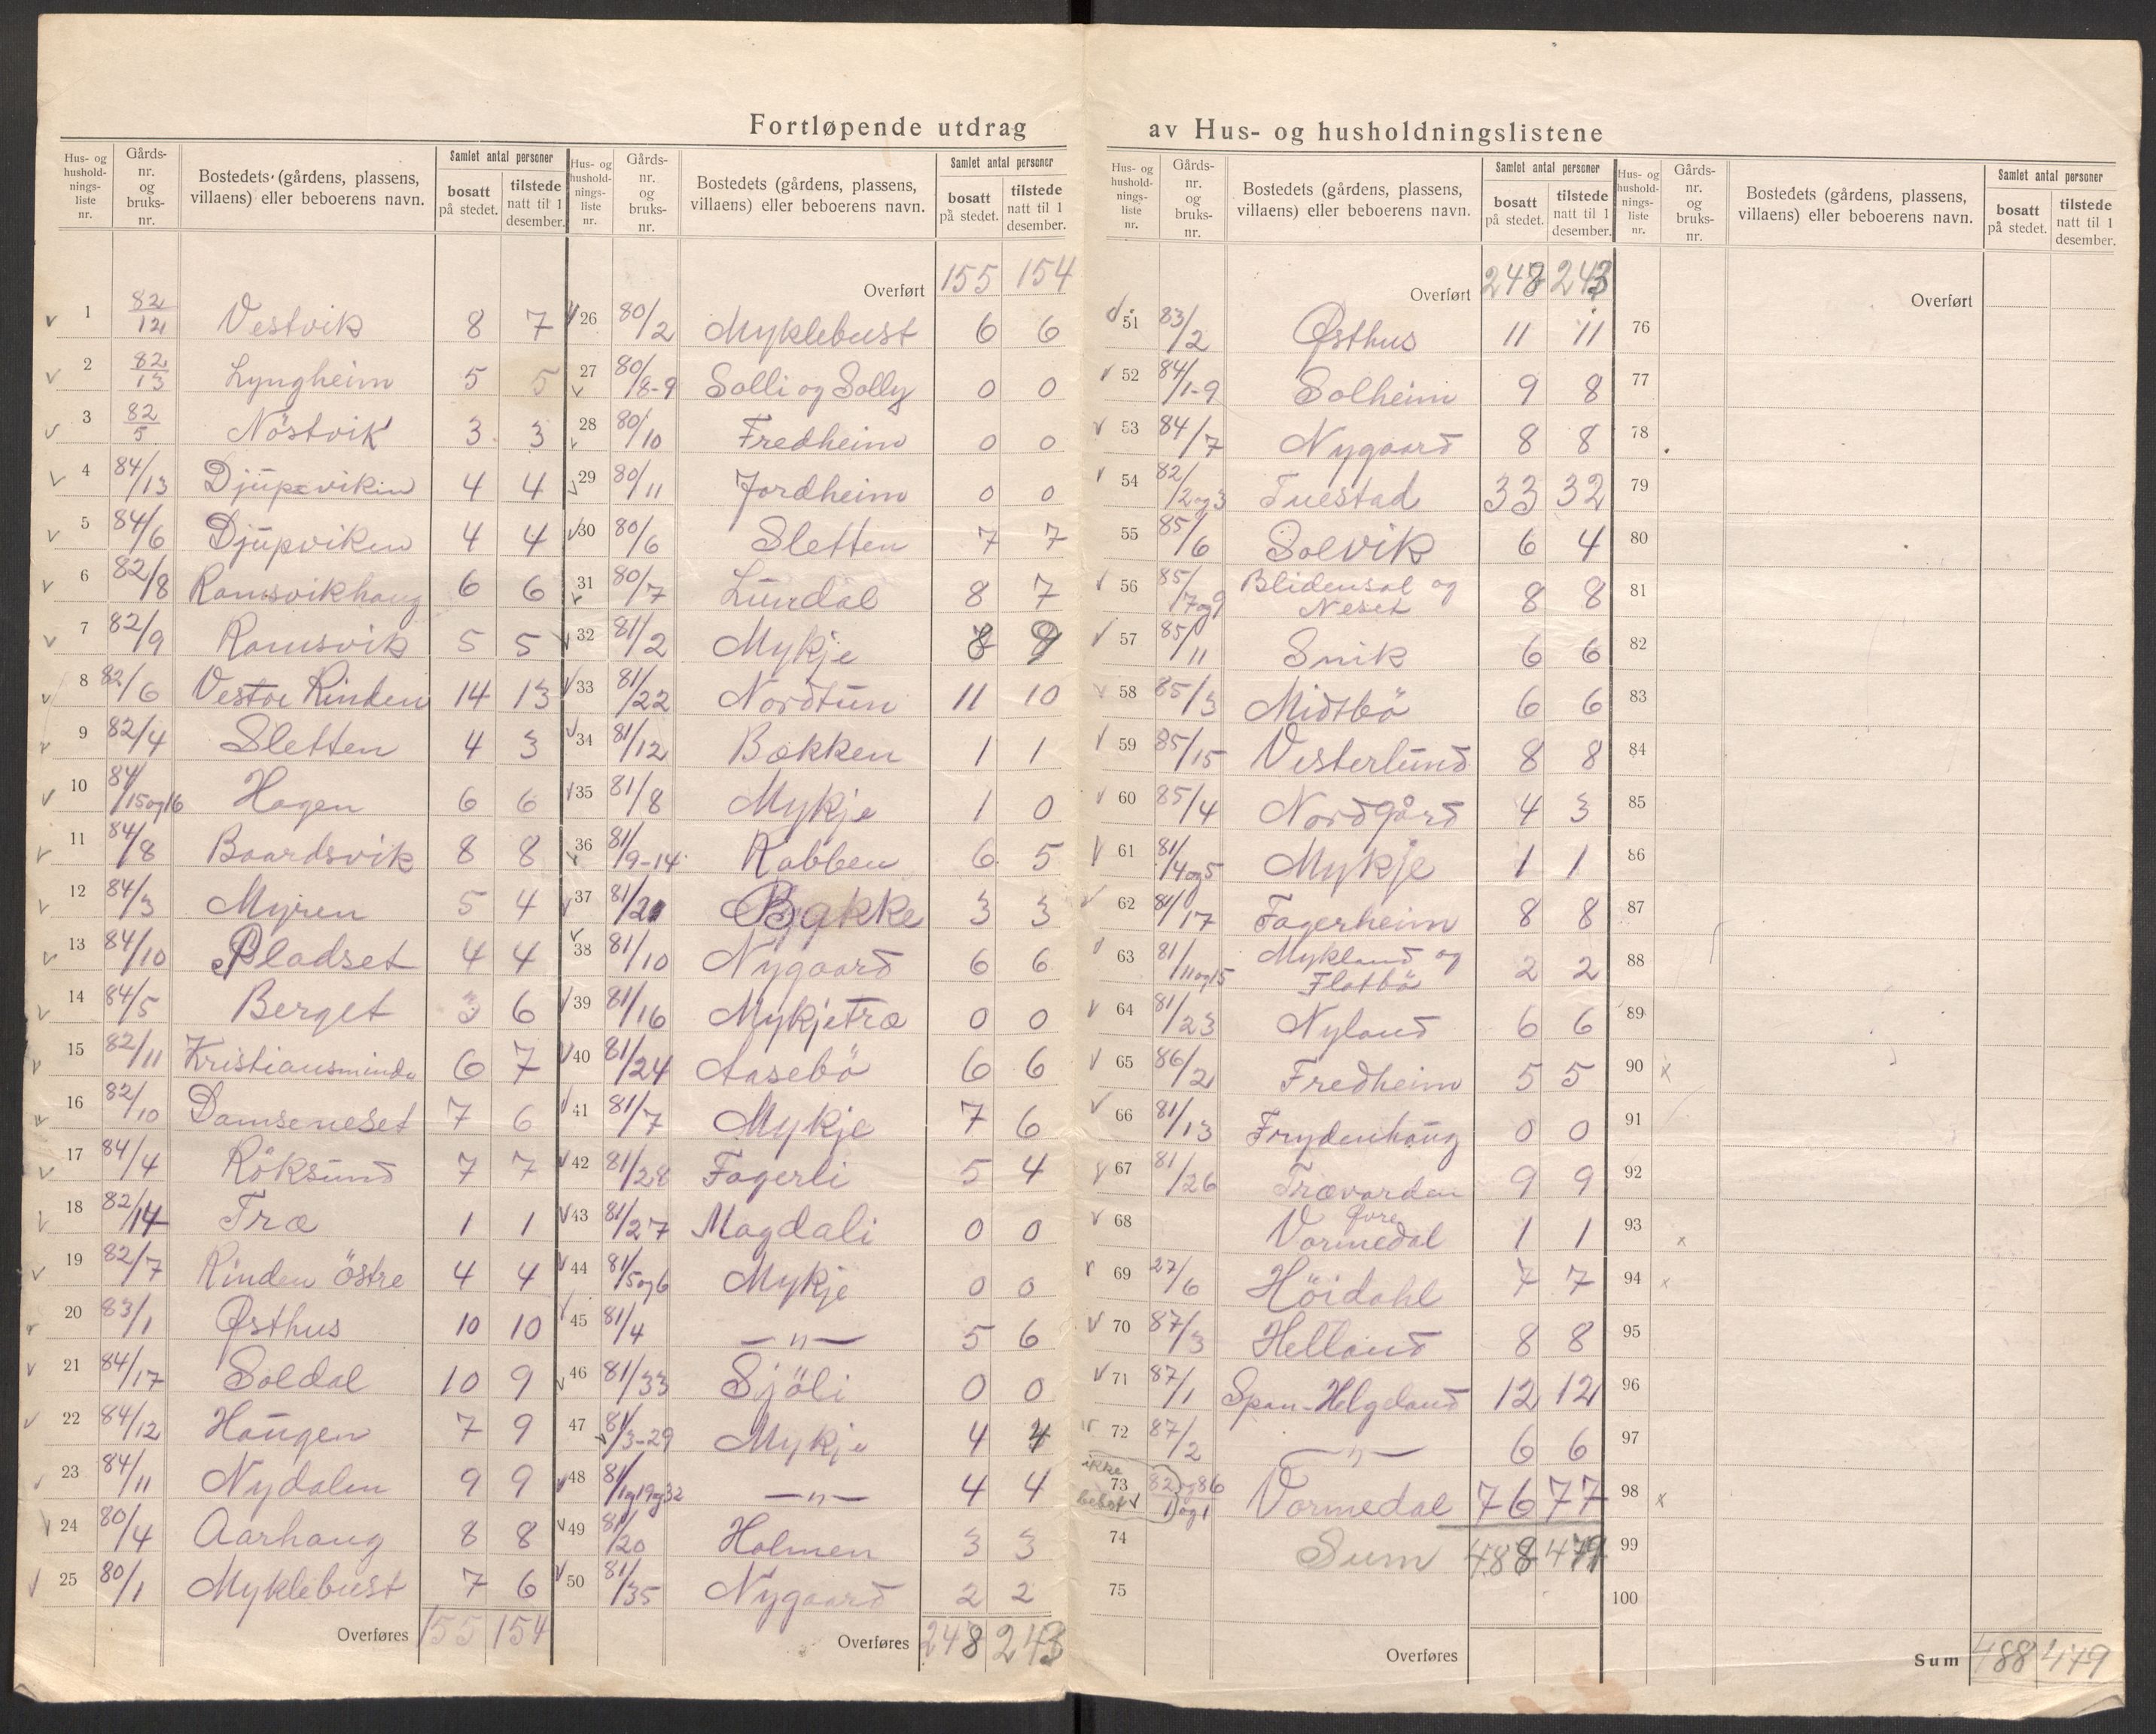 Fortløpende utdrag av Hus- og husholdningslistene
Hus- og husholdnings-liste nr. | Gårds-nr. og bruks-nr. | Bostedets (gårdens, plassens, villaens) eller beboerens navn. | Samlet antal personer | bosatt på stedet. | tilstede natt til 1 desember.
1 82/12 Vestvik 8 7
2 82/13 Lyngheim 5 5
3 82/5 Nöstvik 3 3
4 84/13 Djupevikin 4 4
5 84/6 Djupviken 4 4
6 82/8 Ramsvikhaug 6 6
7 82/9 Ramsvik 5 5
8 82/6 Vestre Rinden 14 13
9 82/4 Sletten 4 3
10 84/15og16 Hagen 6 6
11 84/8 Baardsvik 8 8
12 84/3 Myren 5 4
13 84/10 Pladset 4 4
14 84/5 Berget 3 6
15 82/11 Kristiansminde 6 7
16 82/10 Damseneset 7 6
17 84/4 Röksund 7 7
18 82/14 Træ 1 1
19 82/7 Rinden östre 4 4
20 83/1 Østhus 10 10
21 84/17 Soldal 10 9
22 84/12 Haugen 7 9
23 84/11 Nydalen 9 9
24 80/4 Aarhaug 8 8
25 80/1 Myklebust 7 6
Overføres 155 154
Hus- og husholdnings-liste nr. | Gårds-nr. og bruks-nr. | Bostedets (gårdens, plassens, villaens) eller beboerens navn. | Samlet antal personer | bosatt på stedet. | tilstede natt til 1 desember.
Overført 155 154
26 80/2 Myklebust 6 6
27 80/8-9 Solli og Solly 0 0
28 80/10 Fredheim 0 0
29 80/11 Jordheim 0 0
30 80/6 Sletten 7 7
31 80/7 Lundal 8 7
32 81/2 Mykje 8 9
33 81/22 Nordtun 11 10
34 81/12 Bakken 1 1
35 81/8 Mykje 1 0
36 81/9-14 Rabben 6 5
37 81/21 Bakke 3 3
38 81/10 Nygaard 6 6
39 81/16 Mykjetræ 0 0
40 81/24 Aasebö 6 6
41 81/7 Mykje 7 6
42 81/28 Fagerli 5 4
43 81/27 Magdali 0 0
44 81/5og6 Mykje 0 0
45 81/4 —"— 5 6
46 81/33 Sjöli 0 0
47 81/3-29 Mykje 4 4
48 81/1og19og32 —"— 4 4
49 81/20 Holmen 3 3
50 81/35 Nygaard 2 2
Overføres 248 243
Hus- og husholdnings-liste nr. | Gårds-nr. og bruks-nr. | Bostedets (gårdens, plassens, villaens) eller beboerens navn. | Samlet antal personer | bosatt på stedet. | tilstede natt til 1 desember.
Overført 248 243
51 83/2 Østhus 11 11
52 84/1-9 Solheim 9 8
53 84/7 Nygaard 8 8
54 82/2og3 Tuestad 33 32
55 85/6 Solvik 6 4
56 85/7og9 Blidensol og Neset 8 8
57 85/11 Snik 6 6
58 85/3 Midtbö 6 6
59 85/15 Vesterlund 8 8
60 85/4 Nordgård 4 3
61 81/4og5 Mykje 1 1
62 81/17 Fagerheim 8 8
63 81/11og15 Mykland og Flatbö 2 2
64 81/23 Nyland 6 6
65 86/2 Fredheim 5 5
66 81/13 Frydenhaug 0 0
67 81/26 Trævarden 9 9
68 Øvre Vormedal 1 1
69 27/6 Höidahl 7 7
70 87/3 Helland 8 8
71 87/1 Span-Helgeland 12 12
72 87/2 —"— 6 6
ikke bebot 73 82og86/1og1 Vormedal 76 77
74 Sum 488 479
75
Overføres
Hus- og husholdnings-liste nr. | Gårds-nr. og bruks-nr. | Bostedets (gårdens, plassens, villaens) eller beboerens navn. | Samlet antal personer | bosatt på stedet. | tilstede natt til 1 desember.
Overført
76
77
78
79
80
81
82
83
84
85
86
87
88
89
90 x
91
92
93 x
94 x
95
96
97
98 x
99
100
Sum 488 479